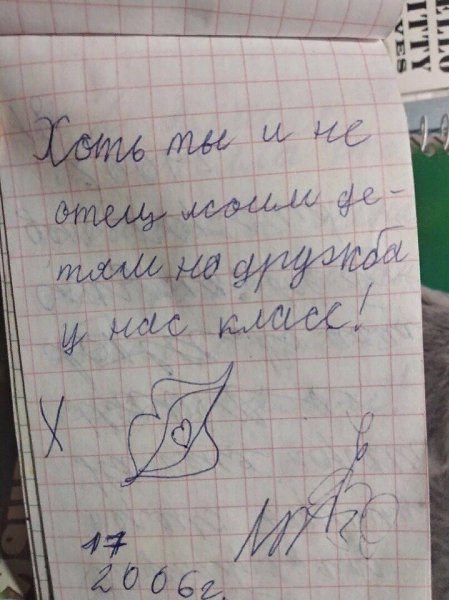 Хоть ты и не
отец моим де-
тям но дружба
у нас класс!
X
17
2006г.